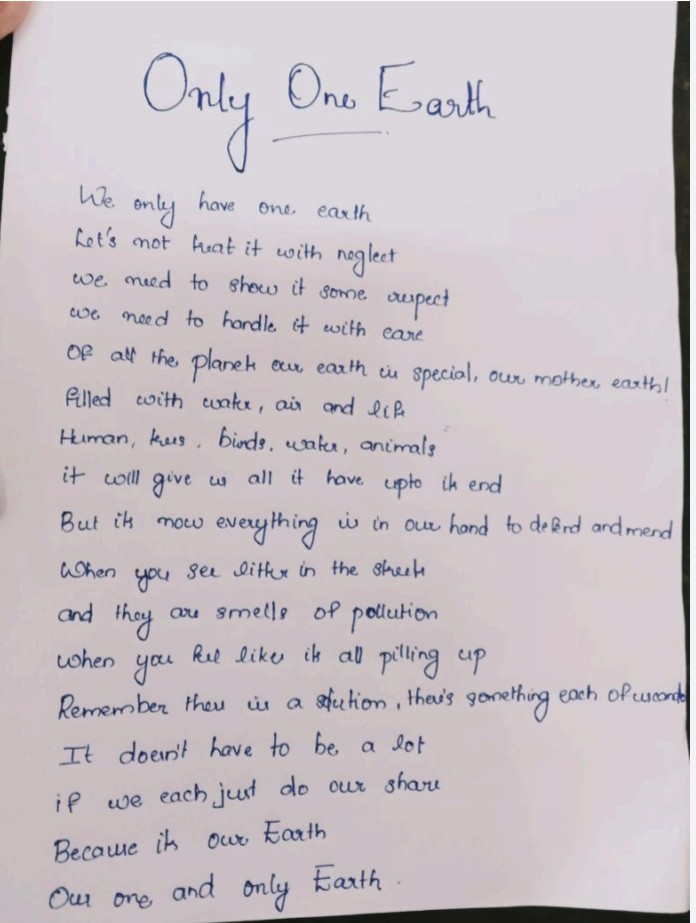 Only One Earth
We only have one earth
Let's not treat it with neglect
we need to show it some respect
we need to handle it with care
Of all the planets our earth is special, our mother earth!
filled with water, air and life
Human, trees, birds, water, animals
it will give us all it have upto its end
But its now everything is in our hand to defend and mend
When you see litter in the streets
and they are smells of pollution
when you feel like its all pilling up
Remember there is a solution, there's something each of us can do
It doesn't have to be a lot
if we each just do our share
Because its our Earth
Our one and only Earth.